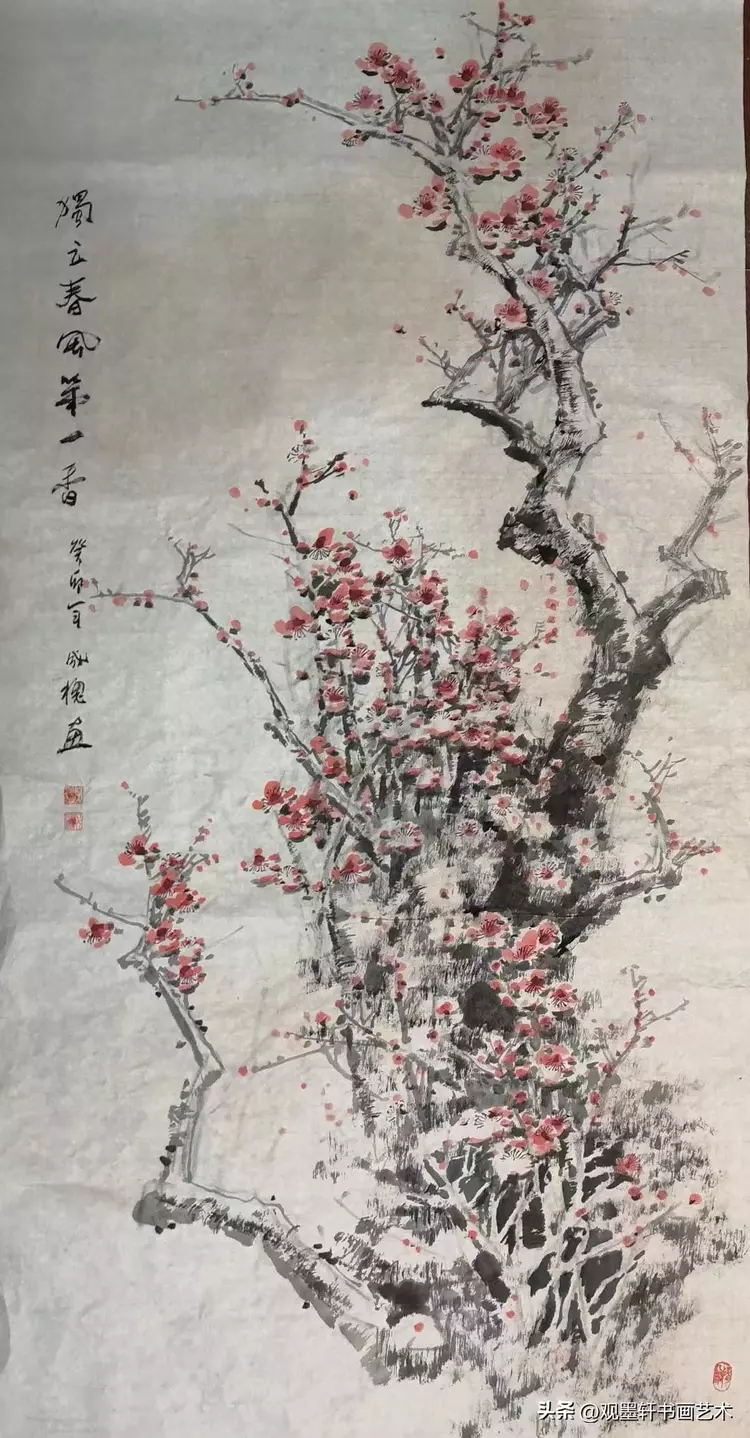 獨立春風第一香
癸卯年 成槐畫
头条 @观墨轩书画艺术